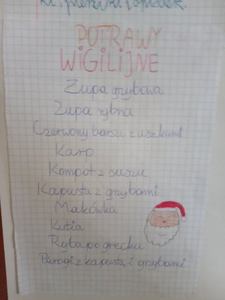 POTRAWY
WIGILIJNE
Zupa grzybowa
Zupa rybna
Czerwony barszcz z uszkami
Karp
Kompot z suszu
Kapusta z grzybami
Makówka
Kutia
Ryba po grecku
Pierogi z kapustą i grzybami